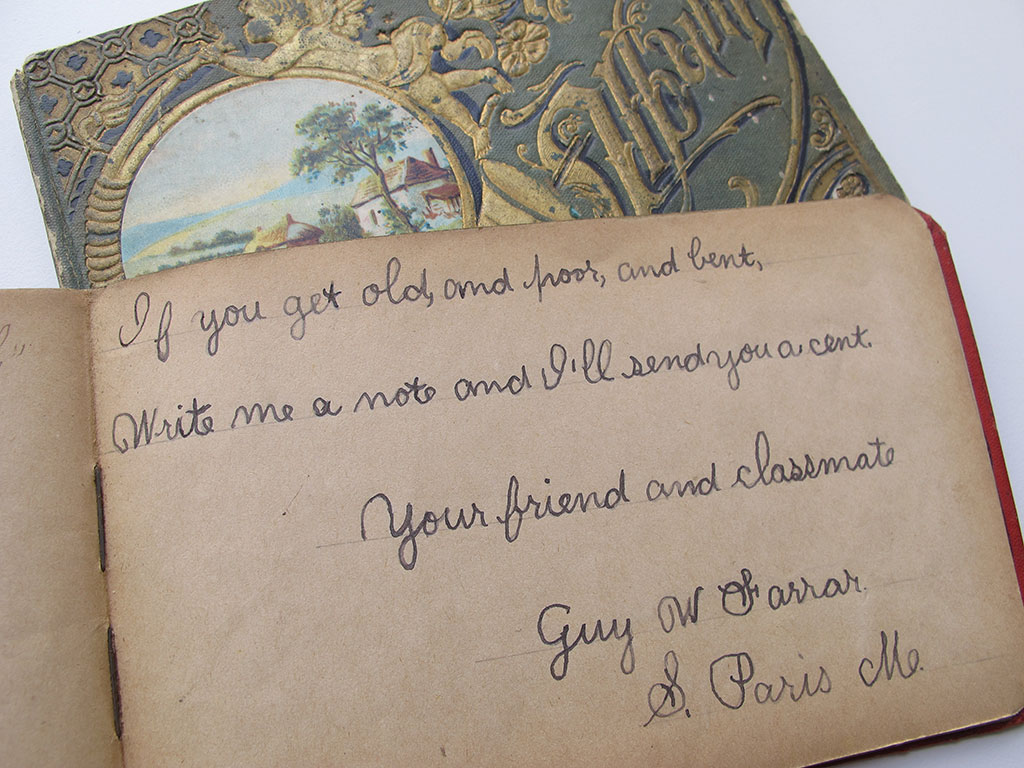 Album
If you get old, and poor, and bent,
Write me a note and I'll send you a cent.
Your friend and classmate
Guy W Farrar.
S. Paris Me.